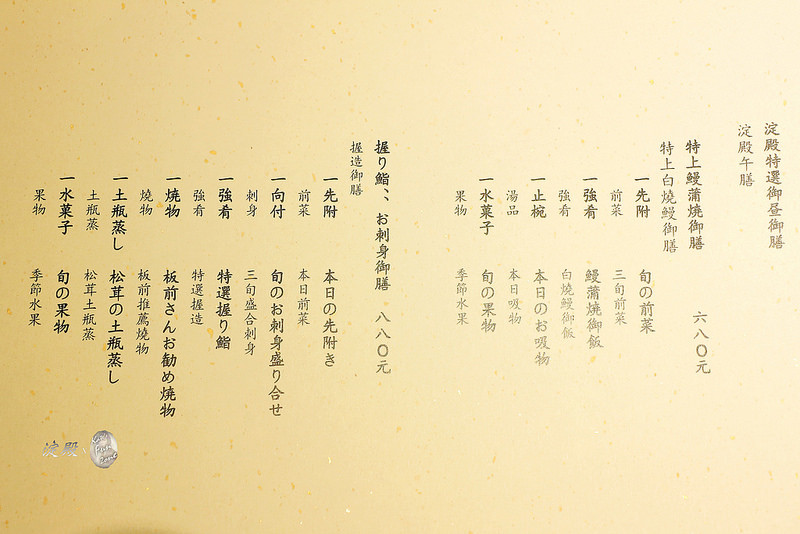 淀殿特選御昼御膳
淀殿午膳
特上鰻蒲焼御膳 六八〇元
特上白燒鰻御膳
一先附 旬の前菜
前菜 三旬前菜
一強肴 鰻蒲焼御飯
強肴 白燒鰻御飯
一止椀 本日のお吸物
湯品 本日吸物
一水菓子 旬の果物
果物 季節水果
握り鮨、、お刺身御膳 八八〇元
握造御膳
一先附 本日の先附き
前菜 本日前菜
一向付 旬のお刺身盛り合せ
刺身 三旬盛合刺身
一強肴 特選握り鮨
強肴 特選握造
一焼物 板前さんお勧め焼物
燒物 板前推薦燒物
一土瓶蒸し 松茸の土瓶蒸し
土瓶蒸 松茸土瓶蒸
一水菓子 旬の果物
果物 季節水果
淀殿